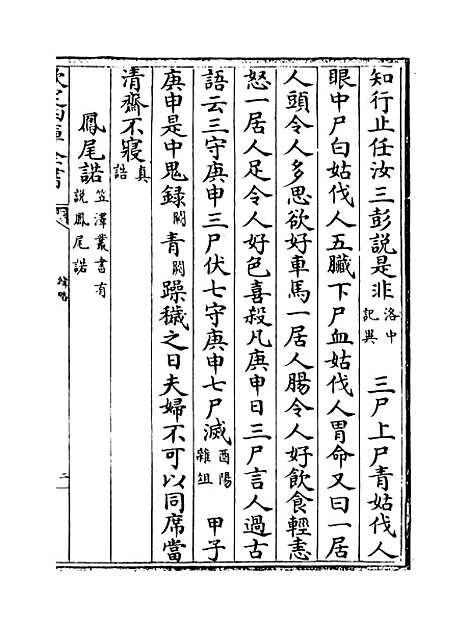 知行止任汝三彭說是非洛中記異　三尸上尸青姑伐人
眼中尸白姑伐人五臟下尸血姑伐人胃命又曰一居
人頭令人多思欲好車馬一居人腸令人好飲食輕恚
怒一居人足令人好色喜殺凡庚申日三尸言人過古
語云三守庚申三尸伏七守庚申七尸滅酉陽雜俎　甲子
庚申是中鬼録闕青闕躁穢之日夫婦不可以同席當
清齋不寢真誥
鳳尾諾笠澤叢書有說鳳尾諾
欽定四庫全書
緯略
二